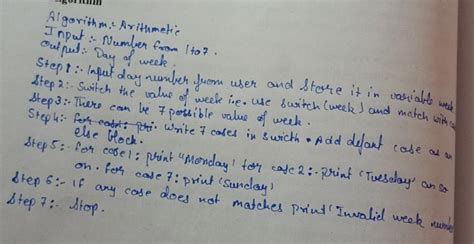 Algorithm
Algorithm:- Arithmetic
Input :- Number from 1 to 7.
Output:- Day of week.
Step 1 :- Input day number from user and store it in variable week
Step 2:- Switch the value of week i.e. use switch (week) and match with
Step 3:- There can be 7 possible value of week.
Step 4:- for case 1: pri- write 7 cases in swicth . Add defaut case as an
else block.
Step 5:- for case 1: print 'Monday' for case 2:- print 'Tuesday' an so
on. for case 7: print 'Sunday'
Step 6:- if any case does not matches print 'Invalid week number
Step 7:- Stop.